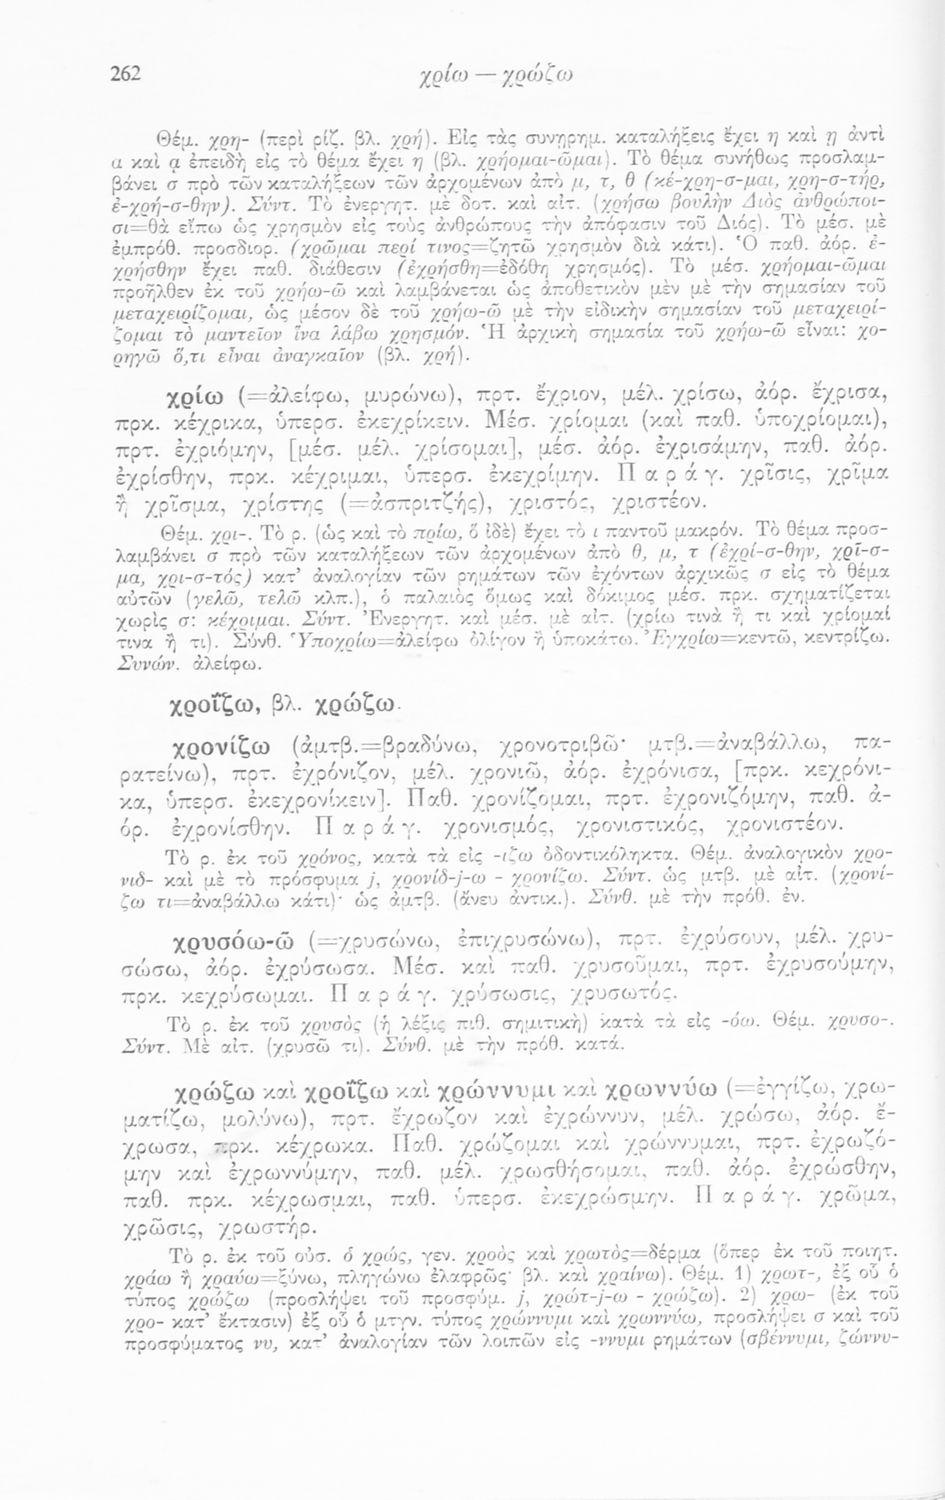 262 χρίω — χρώζω
Θέμ. χρη- (περὶ ρίζ. βλ. χρή). Εἰς τὰς συνῃρημ. καταλήξεις ἔχει η καὶ ῃ ἀντὶ
α καὶ ᾳ ἐπειδὴ εἰς τὸ θέμα ἔχει η (βλ. χρήομαι-ῶμαι). Τὸ θέμα συνήθως προσλαμ-
βάνει σ πρὸ τῶν καταλήξεων τῶν ἀρχομένων ἀπὸ μ, τ, θ (κέ-χρη-σ-μαι, χρη-σ-τήρ,
ἐ-χρή-σ-θην). Σύντ. Τὸ ἐνεργητ. μὲ δοτ. καὶ αἰτ. (χρήσω βουλὴν Διὸς ἀνθρώποι-
σι=θὰ εἴπω ὡς χρησμὸν εἰς τοὺς ἀνθρώπους τὴν ἀπόφασιν τοῦ Διός). Τὸ μέσ. μὲ
ἐμπρόθ. προσδιορ. (χρῶμαι περί τινος=ζητῶ χρησμὸν διὰ κάτι). Ὁ παθ. ἀόρ. ἐ-
χρήσθην ἔχει παθ. διάθεσιν (ἐχρήσθη=ἐδόθη χρησμός). Τὸ μέσ. χρήομαι-ῶμαι
προῆλθεν ἐκ τοῦ χρήω-ῶ καὶ λαμβάνεται ὡς ἀποθετικὸν μὲν μὲ τὴν σημασίαν τοῦ
μεταχειρίζομαι, ὡς μέσον δὲ τοῦ χρήω-ῶ μὲ τὴν εἰδικὴν σημασίαν τοῦ μεταχειρί-
ζομαι τὸ μαντεῖον ἵνα λάβω χρησμόν. Ἡ ἀρχικὴ σημασία τοῦ χρήω-ῶ εἶναι: χο-
ρηγῶ ὅ,τι εἶναι ἀναγκαῖον (βλ. χρή).
χρίω (=ἀλείφω, μυρώνω), πρτ. ἔχριον, μέλ. χρίσω, ἀόρ. ἔχρισα,
πρκ. κέχρικα, ὑπερσ. ἐκεχρίκειν. Μέσ. χρίομαι (καὶ παθ. ὑποχρίομαι),
πρτ. ἐχριόμην, [μέσ. μέλ. χρίσομαι], μέσ. ἀόρ. ἐχρισάμην, παθ. ἀόρ.
ἐχρίσθην, πρκ. κέχριμαι, ὑπερσ. ἐκεχρίμην. Παράγ. χρῖσις, χρῖμα
ἢ χρῖσμα, χρίστης (=ἀσπριτζής), χριστός, χριστέον.
Θέμ. χρι-. Τὸ ρ. (ὡς καὶ τὸ πρίω, ὃ ἰδὲ) ἔχει τὸ ι παντοῦ μακρόν. Τὸ θέμα προσ-
λαμβάνει σ πρὸ τῶν καταλήξεων τῶν ἀρχομένων ἀπὸ θ, μ, τ (ἐχρί-σ-θην, χρῖ-σ-
μα, χρι-σ-τός) κατ' ἀναλογίαν τῶν ρημάτων τῶν ἐχόντων ἀρχικῶς σ εἰς τὸ θέμα
αὐτῶν (γελῶ, τελῶ κλπ.), ὁ παλαιὸς ὅμως καὶ δόκιμος μέσ. πρκ. σχηματίζεται
χωρὶς σ: κέχριμαι. Σύντ. Ἐνεργητ. καὶ μέσ. μὲ αἰτ. (χρίω τινὰ ἤ τι καὶ χρίομαί
τινα ἤ τι). Σύνθ. Ὑποχρίω=ἀλείφω ὀλίγον ἢ ὑποκάτω. Ἐγχρίω=κεντῶ, κεντρίζω.
Συνών. ἀλείφω.
χροΐζω, βλ. χρώζω.
χρονίζω (ἀμτβ.=βραδύνω, χρονοτριβῶ· μτβ.=ἀναβάλλω, πα-
ρατείνω), πρτ. ἐχρόνιζον, μέλ. χρονιῶ, ἀόρ. ἐχρόνισα, [πρκ. κεχρόνι-
κα, ὑπερσ. ἐκεχρονίκειν]. Παθ. χρονίζομαι, πρτ. ἐχρονιζόμην, παθ. ἀ-
όρ. ἐχρονίσθην. Παράγ. χρονισμός, χρονιστικός, χρονιστέον.
Τὸ ρ. ἐκ τοῦ χρόνος, κατὰ τὰ εἰς -ιζω ὀδοντικόληκτα. Θέμ. ἀναλογικὸν χρο-
νιδ- καὶ μὲ τὸ πρόσφυμα j, χρονίδ-j-ω - χρονίζω. Σύντ. ὡς μτβ. μὲ αἰτ. (χρονί-
ζω τι=ἀναβάλλω κάτι)· ὡς ἀμτβ. (ἄνευ ἀντικ.). Σύνθ. μὲ τὴν πρόθ. ἐν.
χρυσόω-ῶ (=χρυσώνω, ἐπιχρυσώνω), πρτ. ἐχρύσουν, μέλ. χρυ-
σώσω, ἀόρ. ἐχρύσωσα. Μέσ. καὶ παθ. χρυσοῦμαι, πρτ. ἐχρυσούμην,
πρκ. κεχρύσωμαι. Παράγ. χρύσωσις, χρυσωτός.
Τὸ ρ. ἐκ τοῦ χρυσὸς (ἡ λέξις πιθ. σημιτικὴ) κατὰ τὰ εἰς -όω. Θέμ. χρυσο-.
Σύντ. Μὲ αἰτ. (χρυσῶ τι). Σύνθ. μὲ τὴν πρόθ. κατά.
χρώζω καὶ χροΐζω καὶ χρώννυμι καὶ χρωννύω (=ἐγγίζω, χρω-
ματίζω, μολύνω), πρτ. ἔχρωζον καὶ ἐχρώννυν, μέλ. χρώσω, ἀόρ. ἔ-
χρωσα, πρκ. κέχρωκα. Παθ. χρώζομαι καὶ χρώννυμαι, πρτ. ἐχρωζό-
μην καὶ ἐχρωννύμην, παθ. μέλ. χρωσθήσομαι, παθ. ἀόρ. ἐχρώσθην,
παθ. πρκ. κέχρωσμαι, παθ. ὑπερσ. ἐκεχρώσμην. Παράγ. χρῶμα,
χρῶσις, χρωστήρ.
Τὸ ρ. ἐκ τοῦ οὐσ. ὁ χρώς, γεν. χροὸς καὶ χρωτὸς=δέρμα (ὅπερ ἐκ τοῦ ποιητ.
χράω ἢ χραύω=ξύνω, πληγώνω ἐλαφρῶς· βλ. καὶ χραίνω). Θέμ. 1) χρωτ-, ἐξ οὗ ὁ
τύπος χρώζω (προσλήψει τοῦ προσφύμ. j, χρώτ-j-ω - χρώζω). 2) χρω- (ἐκ τοῦ
χρο- κατ' ἔκτασιν) ἐξ οὗ ὁ μτγν. τύπος χρώννυμι καὶ χρωννύω, προσλήψει σ καὶ τοῦ
προσφύματος νυ, κατ' ἀναλογίαν τῶν λοιπῶν εἰς -ννυμι ρημάτων (σβέννυμι, ζώννυ-